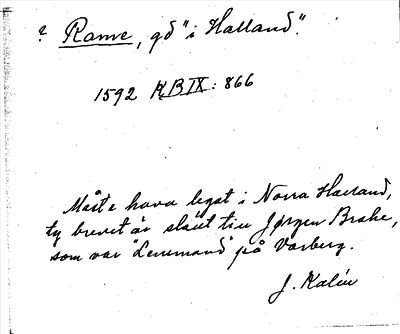 ? Ramme, gd "i Halland".
1592 KB IX: 866
Måste hava legat i Norra Halland,
ty brevet är ställt till Jørgen Brahe,
som var "Lensmand" på Varberg.
J. Kalén